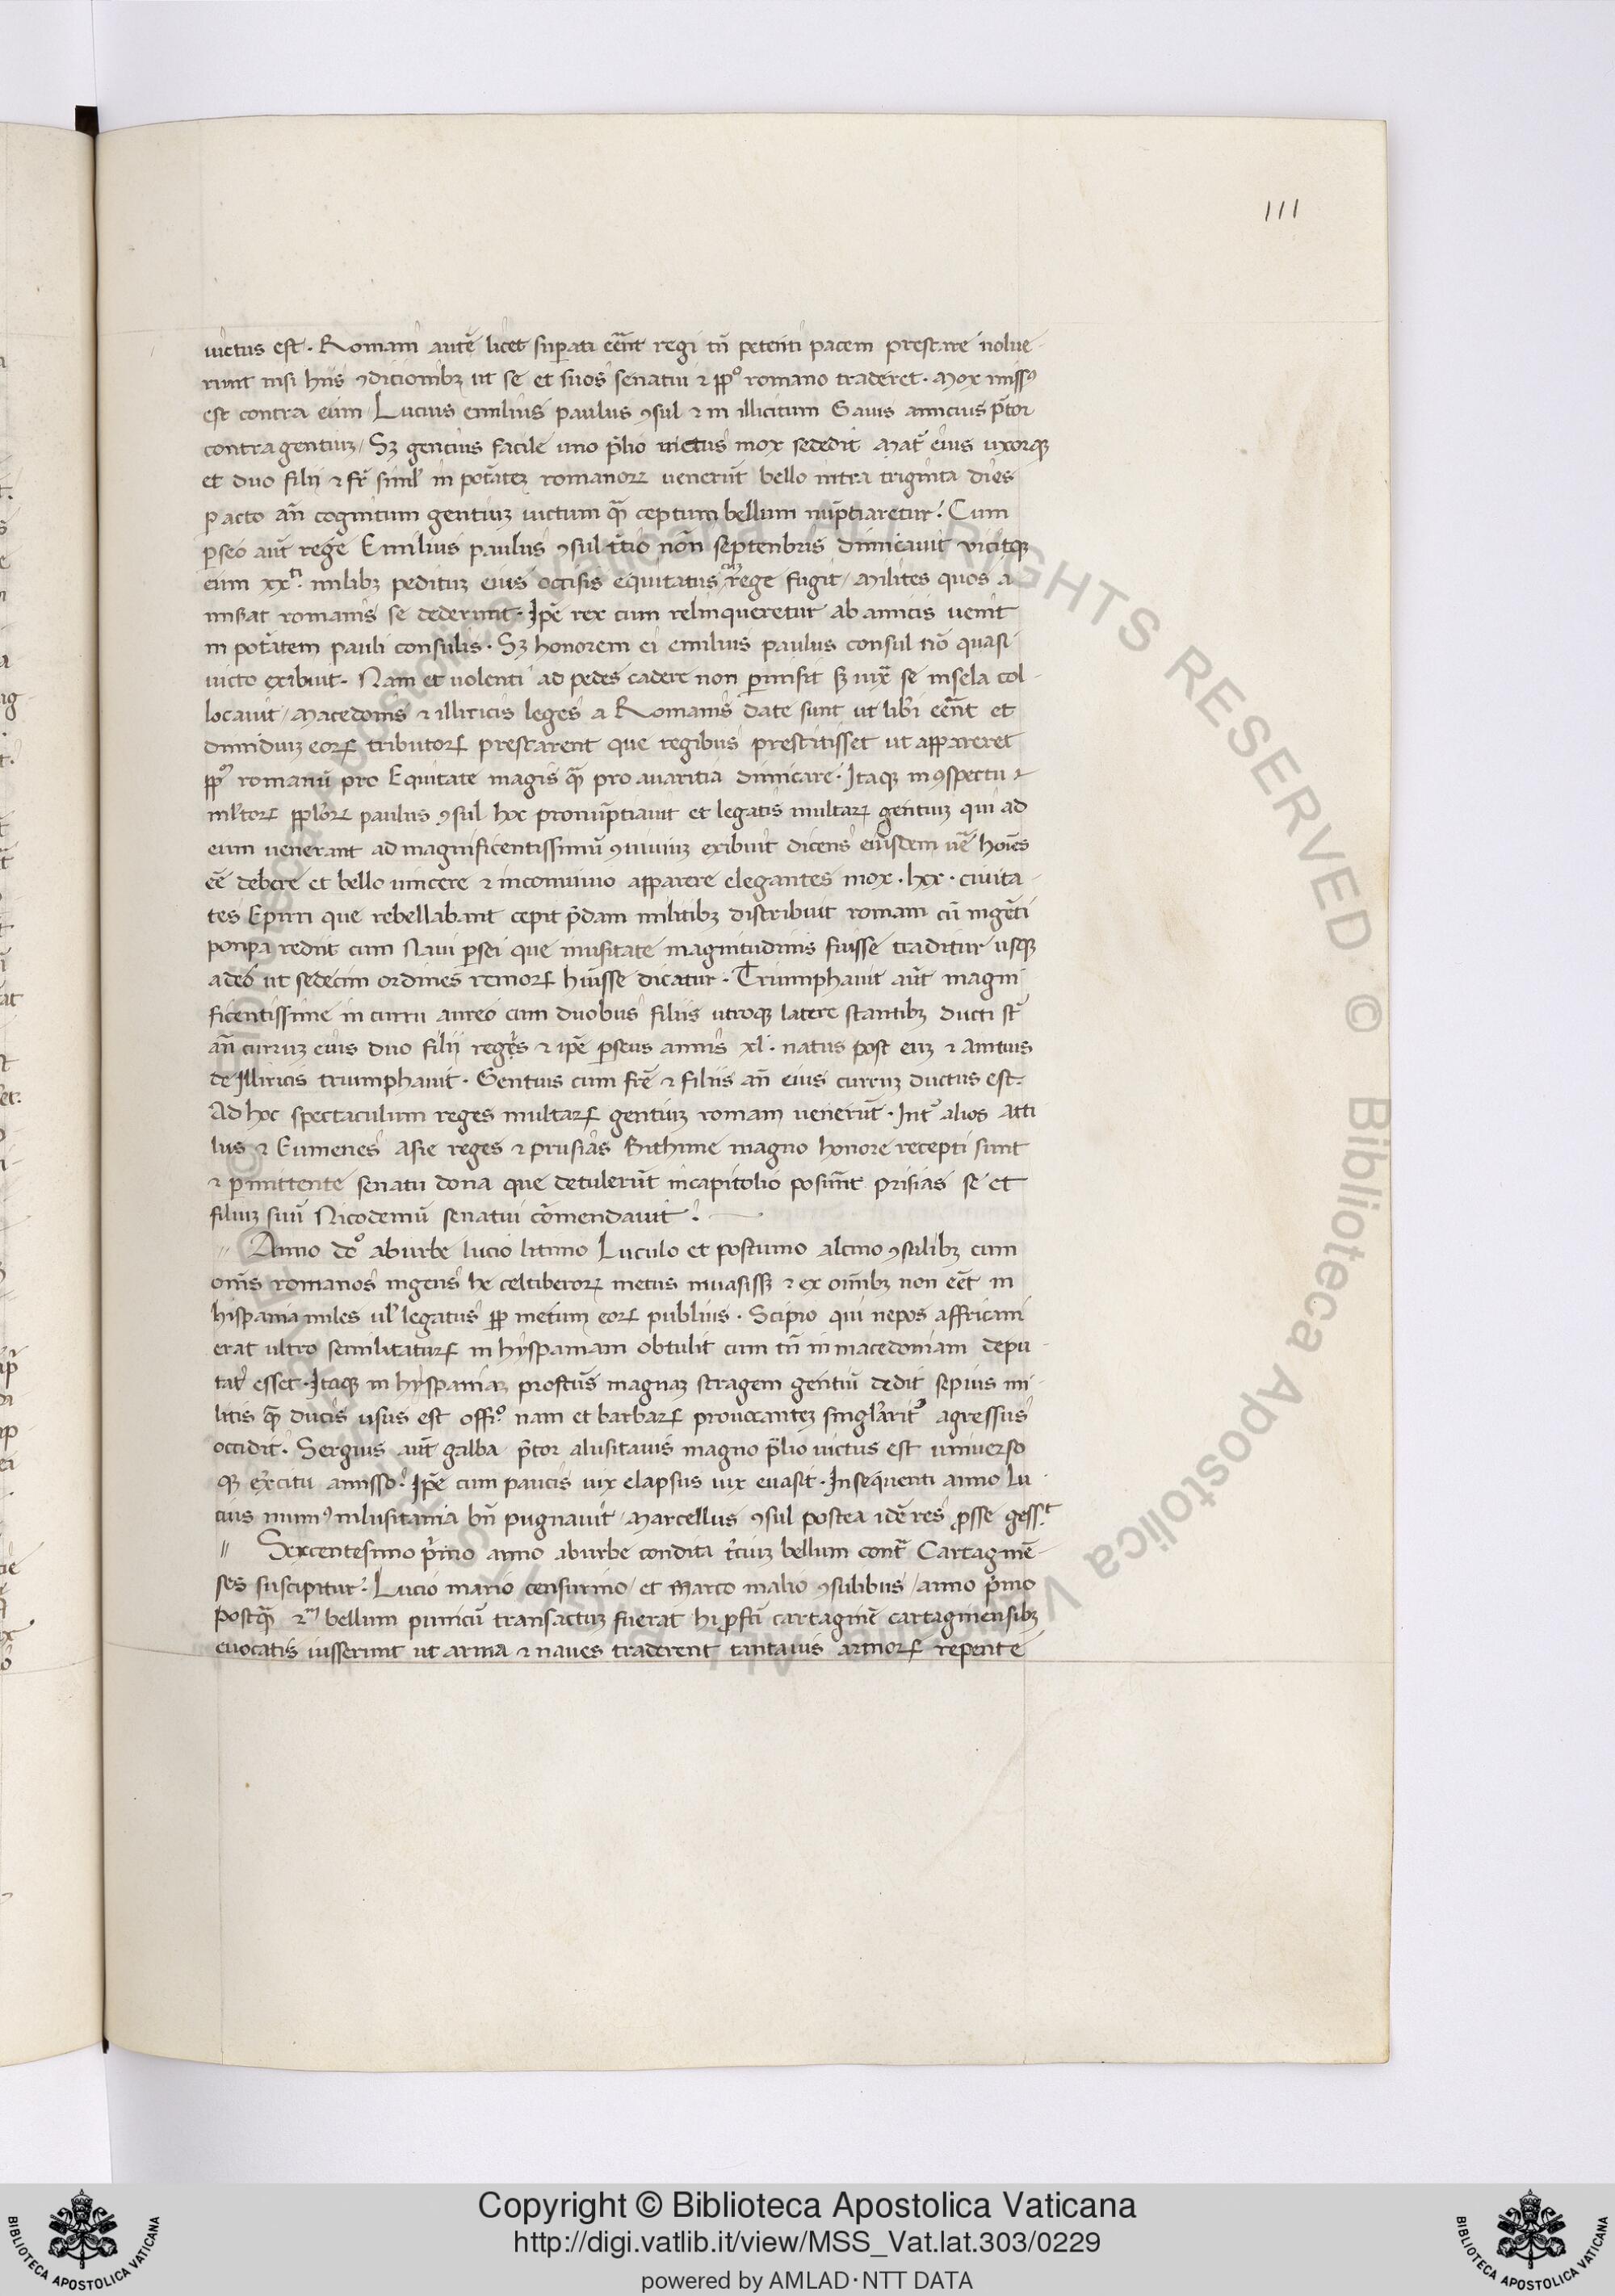 111
victus est. Romani autē licet supati eēnt regi tn̄ petenti pacem prestare nolue-
runt nisi hiis ꝯdicionibꝫ ut se et suos senatui ⁊ ppº romano traderet. Mox missꝰ
est contra eum / Lucius emilius paulus ꝯsul ⁊ in illicitum Gaius anicius p̄tor
contra gentiuꝫ / Sꝫ gencius facile uno p̄lio victus mox se dedit Mat̄ eius uxorqꝫ
et duo filij ⁊ fr̄ simil' in potāteꝫ romanoꝝ venerūt bello intra triginta dies
pacto an̄ cognitum gentiuꝫ victum qꝫ̄ ceptum bellum nūptiaretur. Cum
pseo aut̄ rege Emilius paulus ꝯsul t̄tio non̄ septenbris dimicavit vicitqꝫ
eum xxᵗⁱ. milibꝫ pedituꝫ eius occisis equitatus cū rege fugit / Milites quos a
miserat romanis se dederunt. Ipē rex cum relinqueretur ab amicis venit
in potātem pauli consulis. Sꝫ honorem ei emilius paulus consul nō quasi
victo exibuit. Nam et volenti ad pedes cadere non pmisit sꝫ iux̄ se in sela col-
locavit / Macedonis ⁊ illiricis leges a Romanis date sunt ut libi eēnt et
dimiduiꝫ eoꝝ tributoꝝ prestarent que regibus prestitisset ut appareret
ppꝫ romanū pro Equitate magis qꝫ̄ pro avaritia dimicare. Itaqꝫ in ꝯspectu ⁊
inl'toꝝ ppl'oꝝ paulus ꝯsul hoc pronūptiavit et legatis multaꝝ gentiuꝫ qui ad
eum venerant ad magnificentissimū ꝯviviuꝫ exibuit dicens eiusdem ūe hoiēs
eē debere et bello vincere ⁊ in convivio apparere elegantes mox. lxx. civita-
tes Epiri que rebellabant cepit p̄dam militibꝫ distribuit romam cū ingēti
ponpa rediit cum Navi psei que inusitate magnitudinis fuisse traditur usqꝫ
adeo ut sedecim ordines remoꝝ hūisse dicatur. Triumphavit aut̄ magni
ficentissime in curru aureo cum duobus filiis utroqꝫ latere stantibꝫ ducti st̄
an̄ curruꝫ eius duo filij reges ⁊ ipē pseus annis xl. natus post euꝫ ⁊ Anituis
de Illiricis triumphavit. Gentius cum frē ⁊ filiis an̄ eius curruꝫ ductus est.
Ad hoc spectaculum reges multaꝝ gentiuꝫ romam venerūt. Int' alios Atti
lus ⁊ Eumenes Asie reges ⁊ prusias Bithinie magno honore recepti sunt
⁊ pmittente senatu dona que detulerūt in capitolio posuēnt prisias se et
filiuꝫ suū Nicodemū senatui cōmendavit.
// Anno dcº ab urbe lucio litinio Luculo et postumo alcino ꝯsulibꝫ cum
omīs romanos ingens he celtiberoꝝ metus invasissꝫ ⁊ ex omībꝫ non eēt in
hispania miles ul' legatus pp metum eoꝝ publius. Scipio qui nepos affricani
erat ultro se militatuꝝ in hyspaniam obtulit cum tn̄ in macedoniam depu-
tat' esset. Itaqꝫ in hyspaniaꝫ profctūs magnaꝫ stragem gentiū dedit sepius mi-
litis qꝫ̄ ducis usus est offº. nam et barbaꝝ provocanteꝫ singl'arit' agressus
occidit. Sergius aut̄ galba p̄tor alusitanis magno p̄lio victus est universo
qꝫ exercitu amisso. Ipē cum paucis vix elapsus vix evasit. In sequenti anno lu-
cius mumꝰ in lusitania bn̄ pugnavit / Marcellus ꝯsul postea idē res ꝓsse gess.ᵗ
// Sexcentesimo p'mo anno ab urbe condita t'ciuꝫ bellum cont̄ Cartaginē-
ses suscipitur. Lucio mario censurino / et Marco malio ꝯsulibus / anno p'mo
postqꝫ̄ 2ᵐ bellum punicū transactuꝫ fuerat hi ꝓfcti cartaginē cartaginensibꝫ
evocatis iusserunt ut arma ⁊ naves traderent tanta vis armoꝝ repente
Copyright © Biblioteca Apostolica Vaticana
http://digi.vatlib.it/view/MSS_Vat.lat.303/0229
powered by AMLAD·NTT DATA